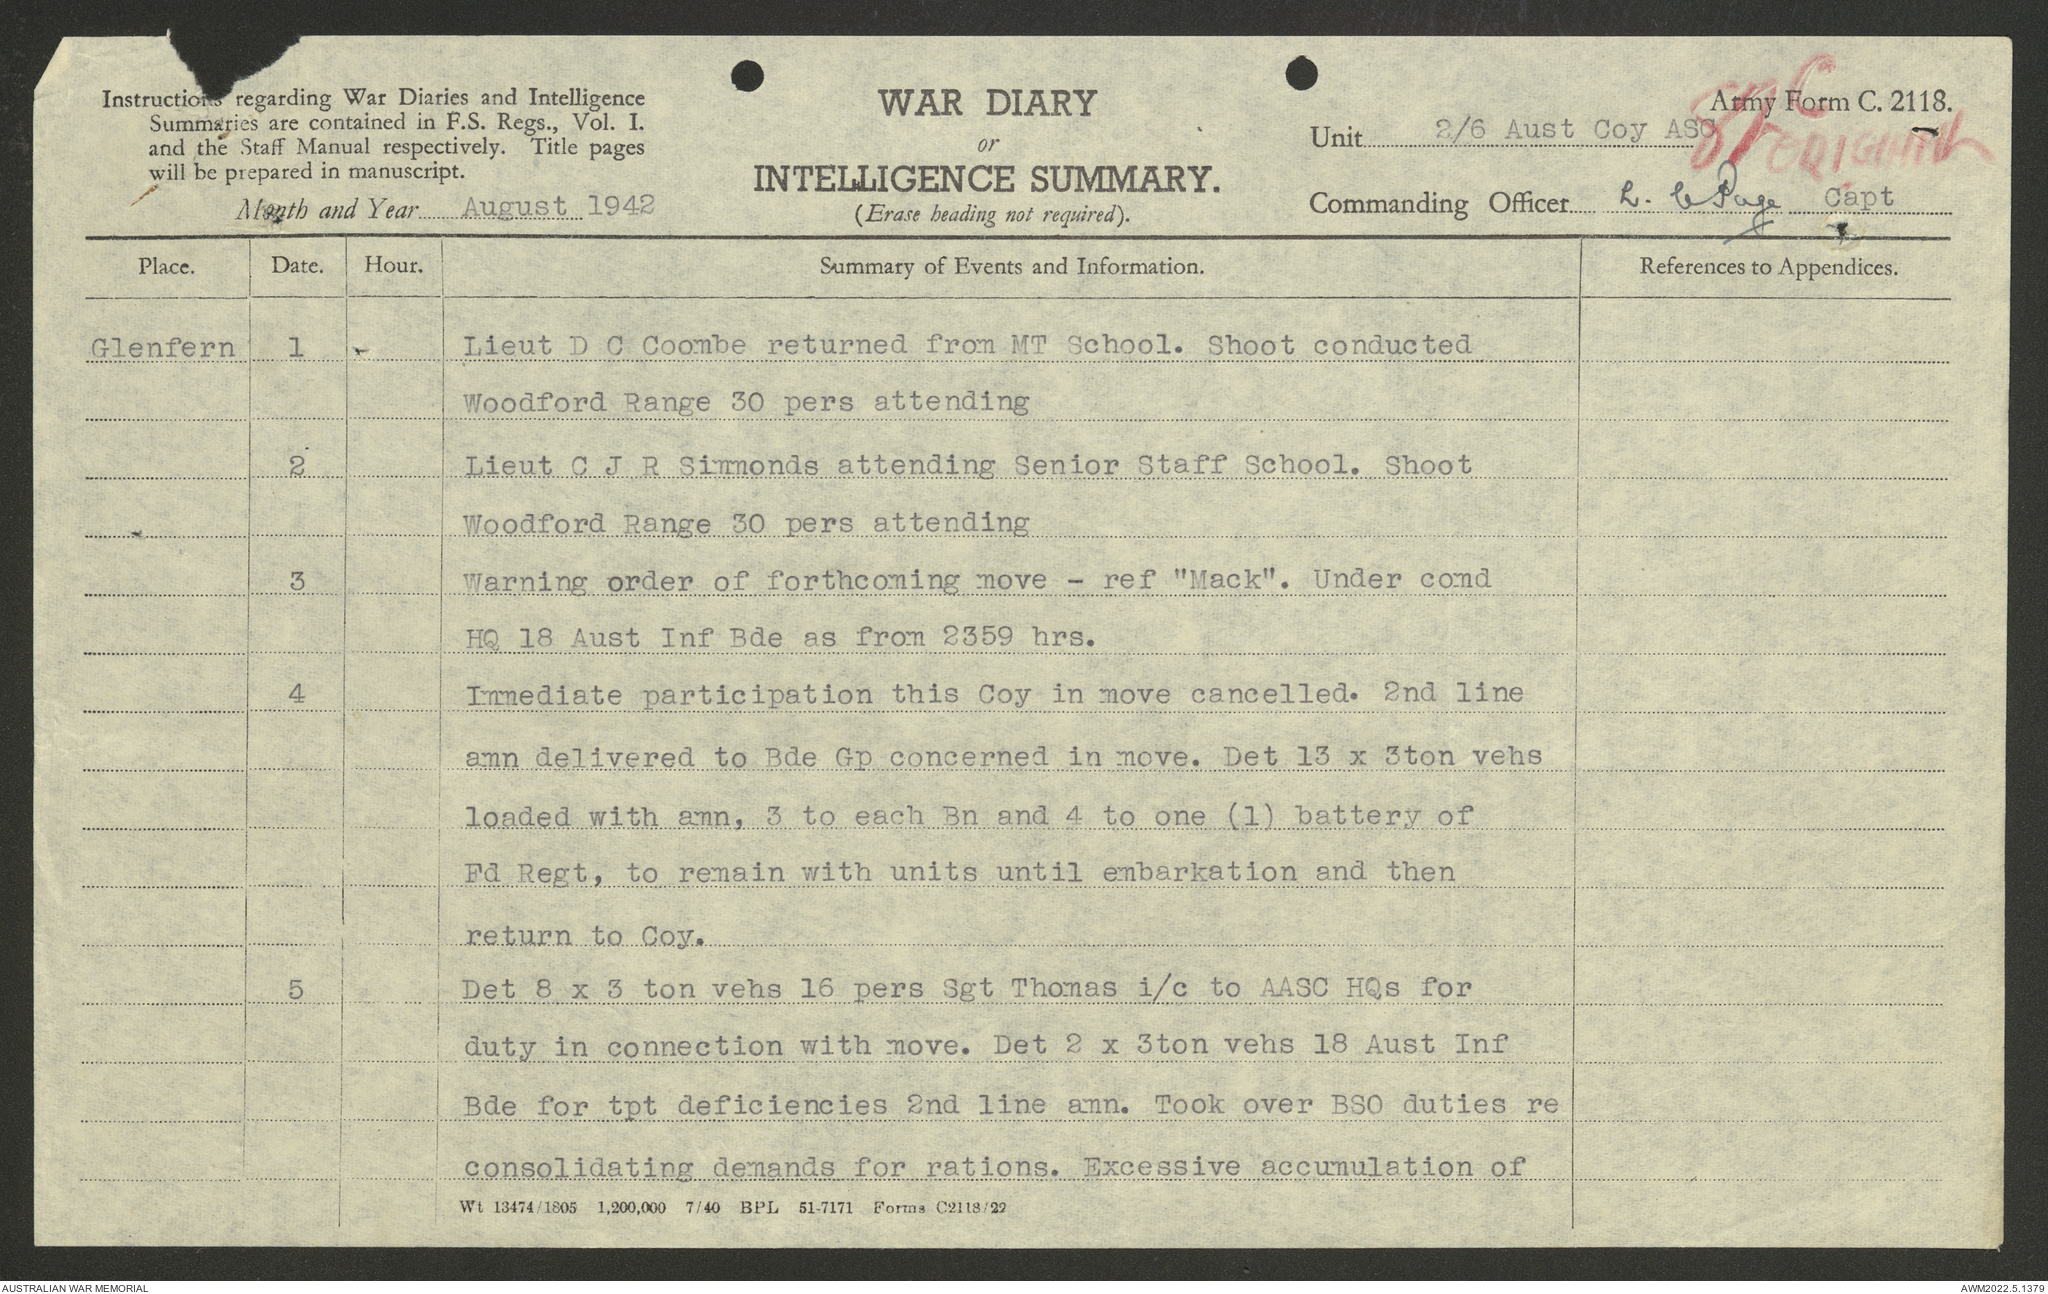 Instructions regarding War Diaries and Intelligence
Summaries are contained in F.S. Regs., Vol. I.
and the Staff Manual respectively. Title pages
will be prepared in manuscript.
Month and Year August 1942
WAR DIARY
or
INTELLIGENCE SUMMARY.
(Erase heading not required).
Army Form C. 2118.
ORIGINAL
Unit 2/6 Aust Coy ASC
Commanding Officer L. Le Page Capt
Place. Date. Hour. Summary of Events and Information. References to Appendices.
Glenfern 1 - Lieut D C Coombe returned from MT School. Shoot conducted
Woodford Range 30 pers attending
2 Lieut C J R Simmonds attending Senior Staff School. Shoot
Woodford Range 30 pers attending
3 Warning order of forthcoming move - ref "Mack". Under comd
HQ 18 Aust Inf Bde as from 2359 hrs.
4 Immediate participation this Coy in move cancelled. 2nd line
amn delivered to Bde Gp concerned in move. Det 13 x 3ton vehs
loaded with amn, 3 to each Bn and 4 to one (1) battery of
Fd Regt, to remain with units until embarkation and then
return to Coy.
5 Det 8 x 3 ton vehs 16 pers Sgt Thomas i/c to AASC HQs for
duty in connection with move. Det 2 x 3ton vehs 18 Aust Inf
Bde for tpt deficiencies 2nd line amn. Took over BSO duties re
consolidating demands for rations. Excessive accumulation of
Wt 13474/1805 1,200,000 7/40 BPL 51-7171 Forms C2118/22
AUSTRALIAN WAR MEMORIAL
AWM2022.5.1379